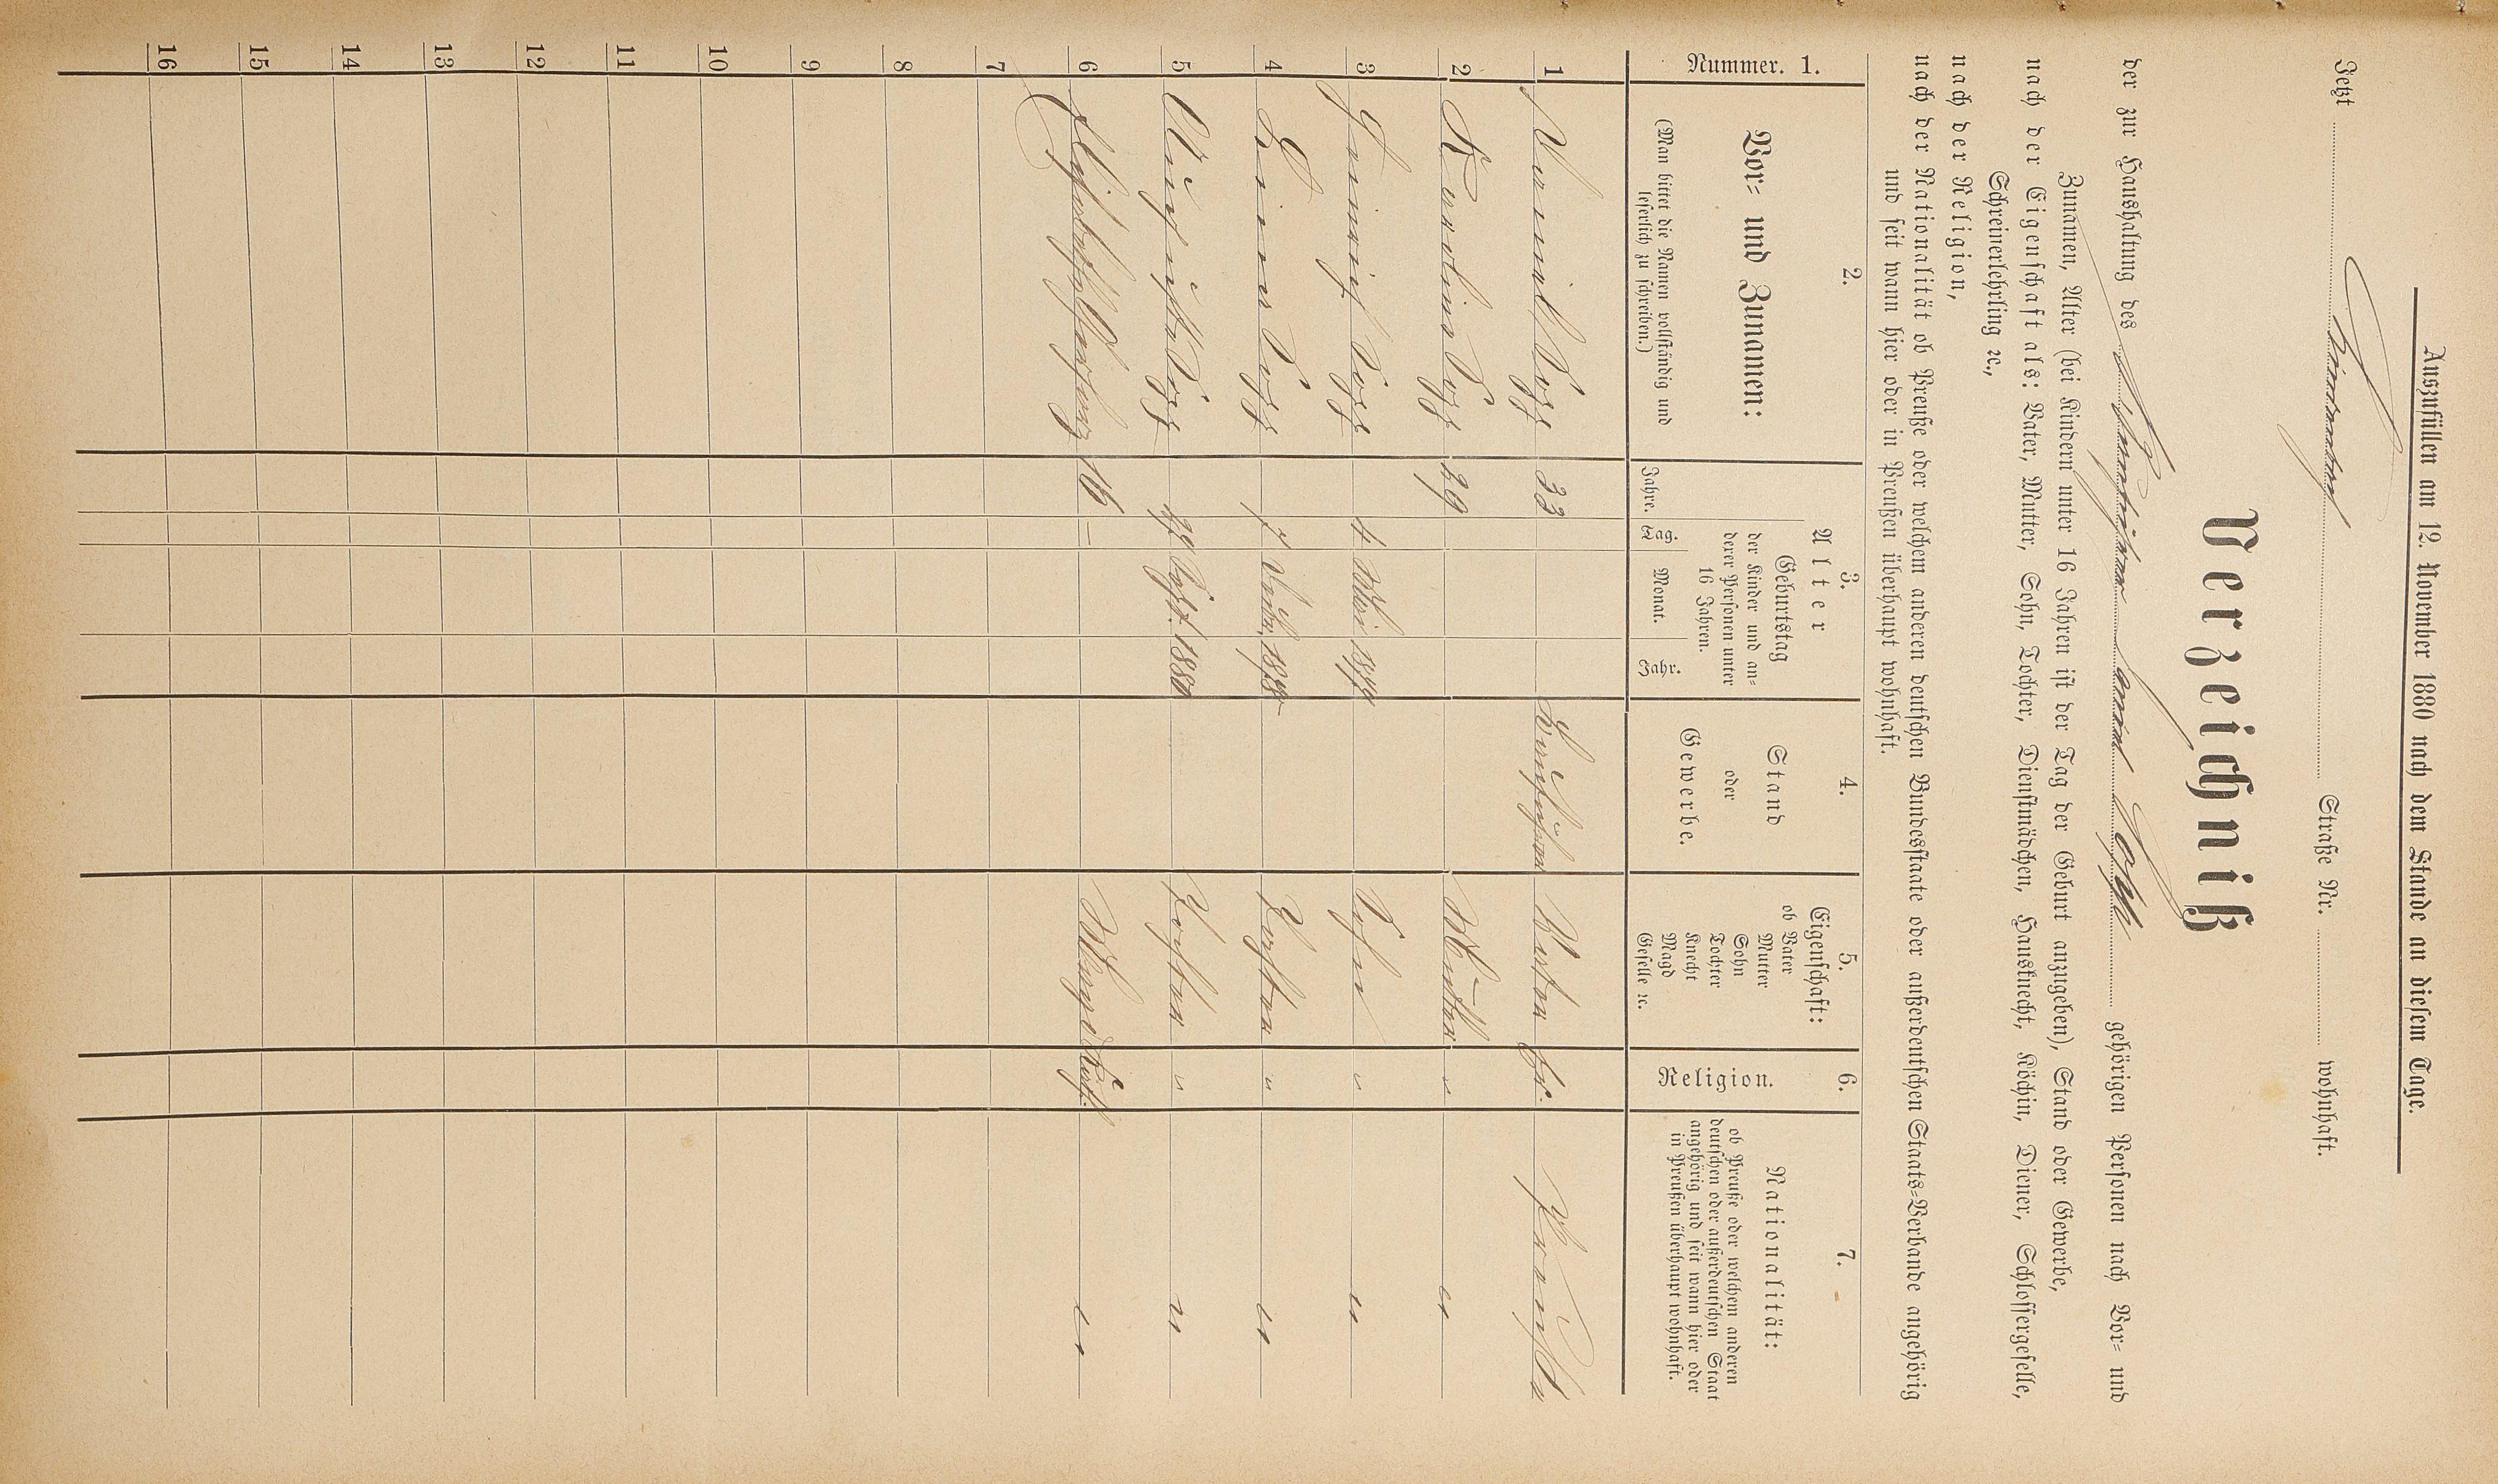 Auszufüllen am 12. November 1880 nach dem Stande an diesem Tage.
Jetzt Straße Nr. wohnhaft.
Verzeichniß
der zur Haushaltung des Voß gehörigen Personen nach Vor- und
Zunamen, Alter (bei Kindern unter 16 Jahren ist der Tag der Geburt anzugeben), Stand oder Gewerbe,
nach der Eigenschaft als: Vater, Mutter, Sohn, Tochter, Dienstmädchen, Hausknecht, Köchin, Diener, Schlossergeselle,
Schreinerlehrling ꝛc.,
nach der Religion,
nach der Nationalität ob Preuße oder welchem anderen deutschen Bundesstaate oder außerdeutschen Staats-Verbande angehörig
und seit wann hier oder in Preußen überhaupt wohnhaft.
Nummer. 1.
2.
Vor- und Zunamen:
(Man bittet die Namen vollständig und
leserlich zu schreiben.)
3.
Alter
Jahre.
Geburtstag
der Kinder und an-
derer Personen unter
16 Jahren.
Tag. Monat. Jahr.
4.
Stand
oder
Gewerbe.
5.
Eigenschaft:
ob Vater
Mutter
Sohn
Tochter
Knecht
Magd
Geselle ꝛc.
6.
Religion.
7.
Nationalität:
ob Preuße oder welchem anderen
deutschen oder außerdeutschen Staat
angehörig und seit wann hier oder
in Preußen überhaupt wohnhaft.
1 Voß 33 Vater Ev. Preuße
2 Karoline Voß 29 Mutter " "
3 Heinrich Voß 4 Mai Sohn " "
4 Voß 7 1878 Tochter " "
5 Voß 29 Sept. 1880 Tochter " "
6 Elisabeth 16 – Magd Kath. "
7
8
9
10
11
12
13
14
15
16